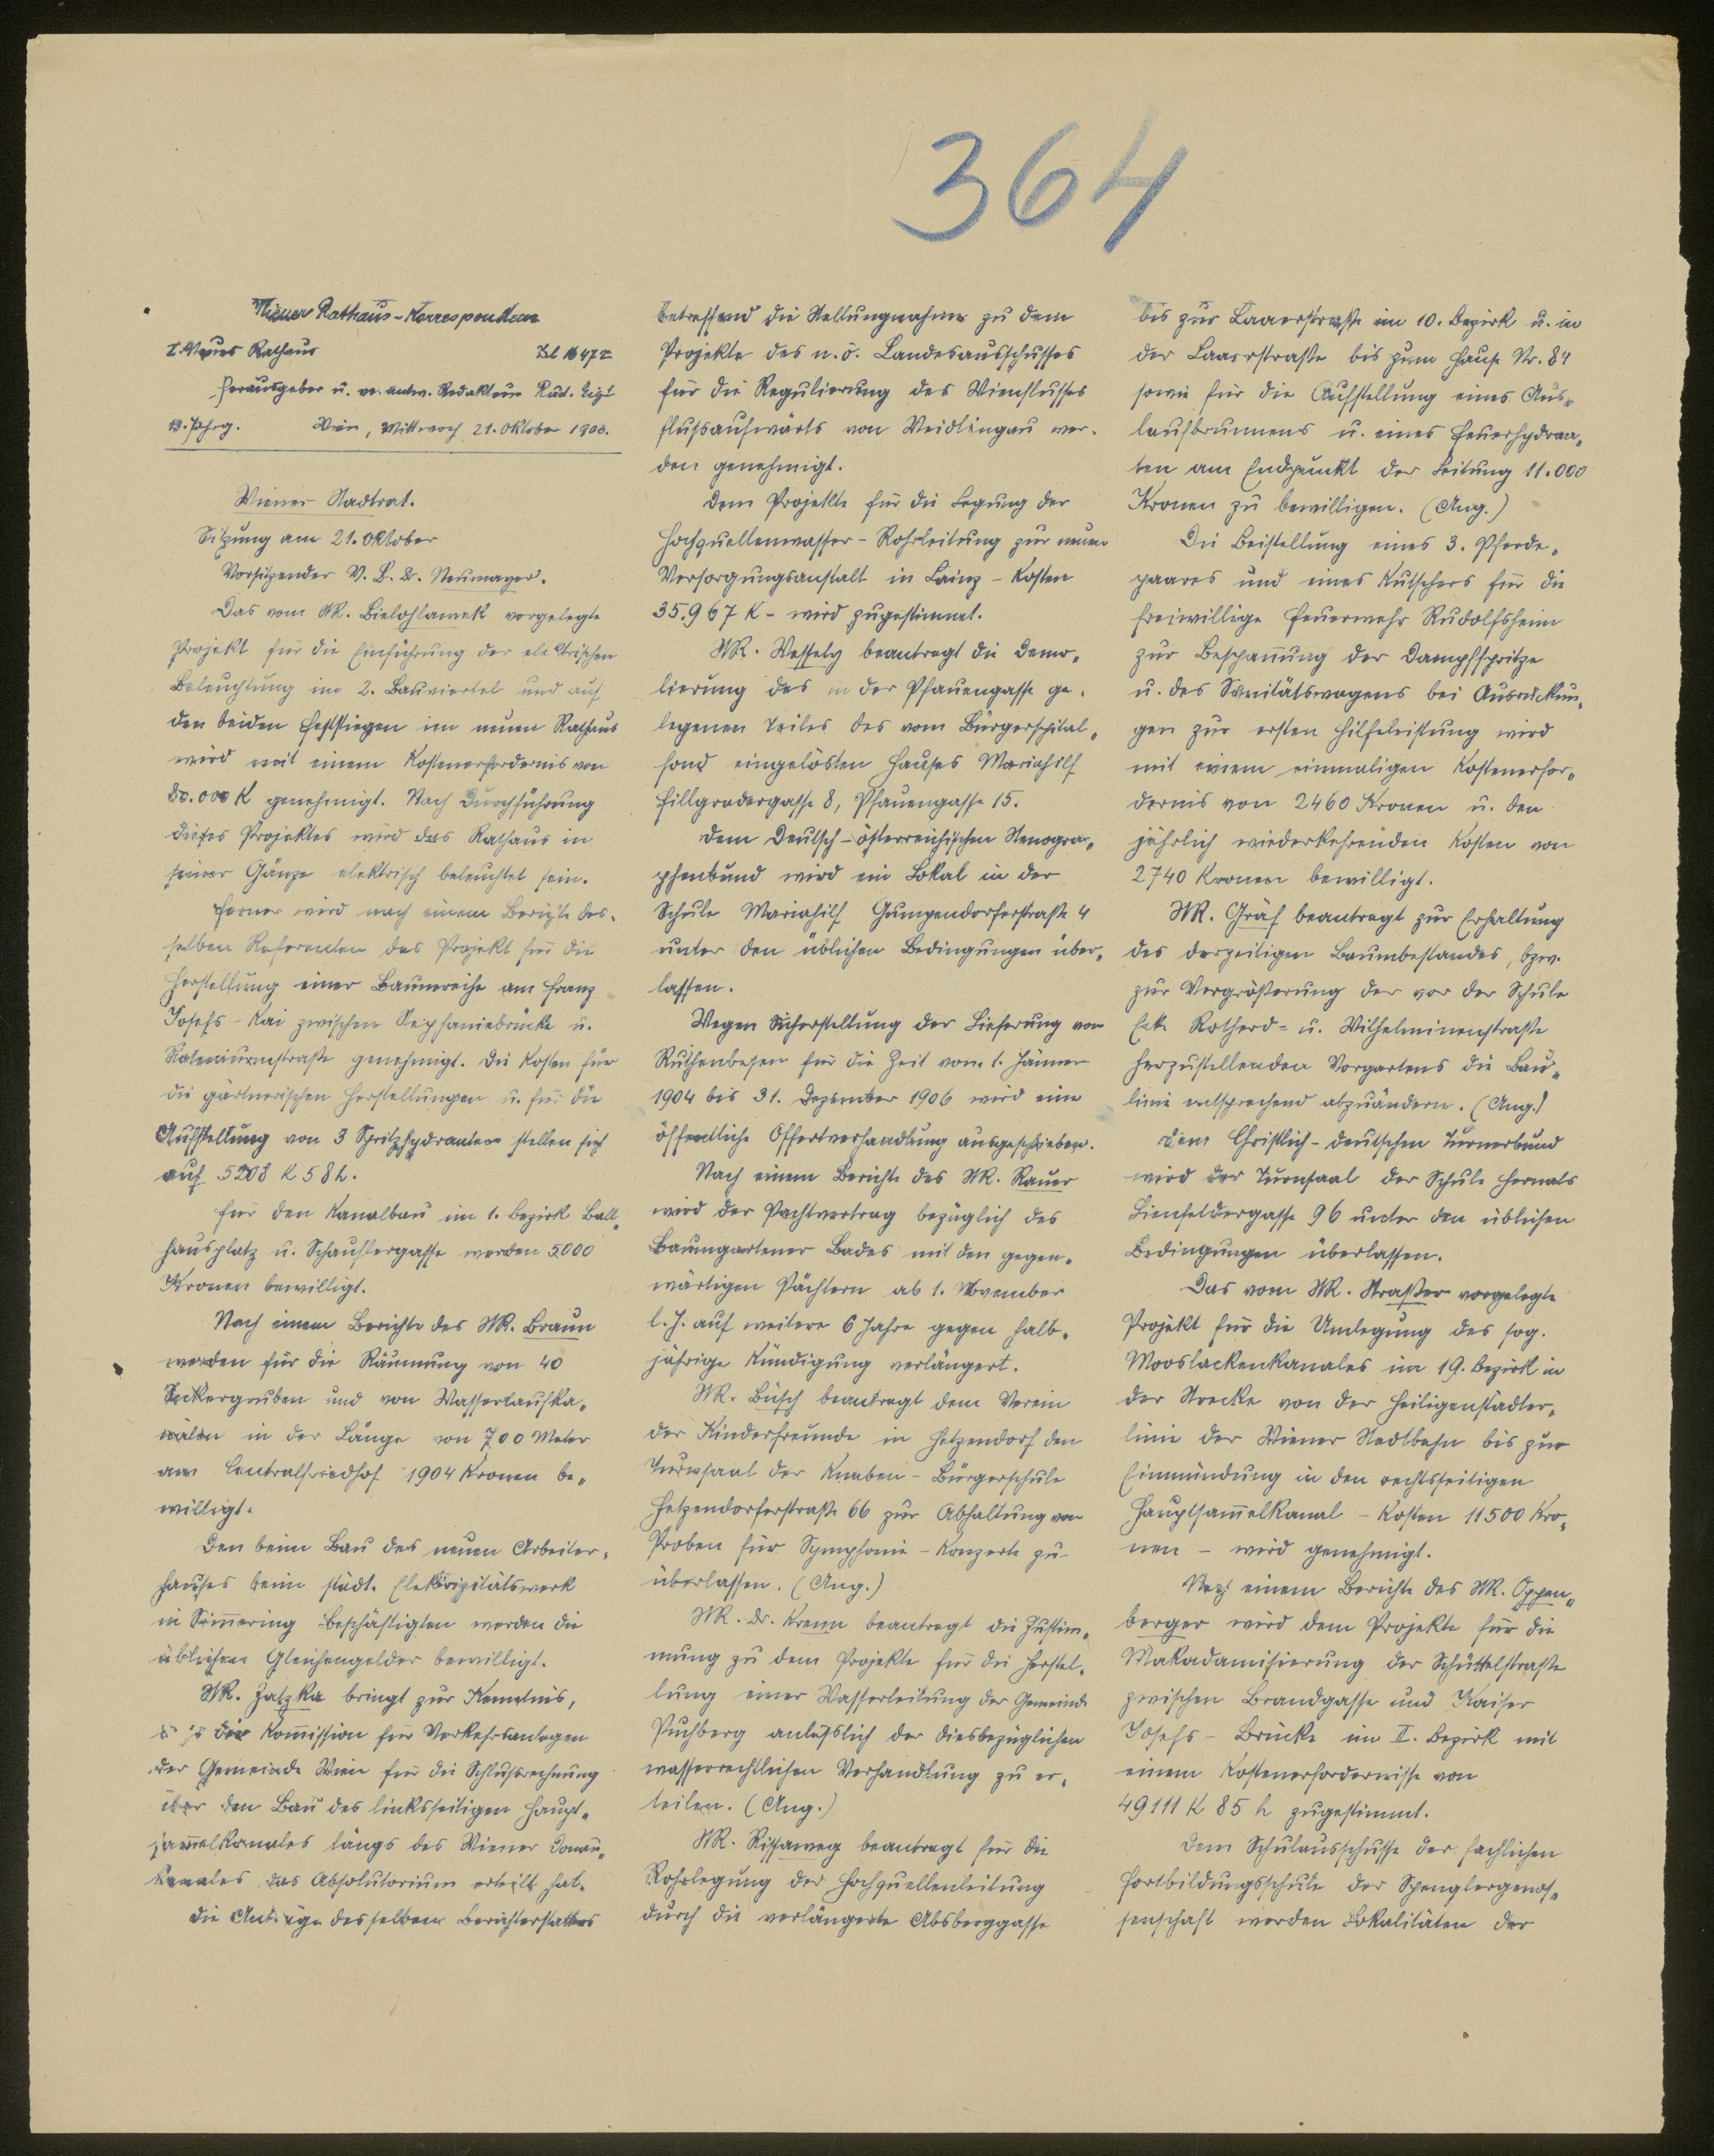 364
Wiener Rathaus-Korrespondenz
I. Neues Rathaus
Herausgeber u. verantw. Redakteur Rud. Eigl
Wien, Mittwoch 21. Oktober 1903.
Wiener Stadtrat.
Sitzung am 21. Oktober
Vorsitzender V. B. Dr. Neumayer.
Das vom StR. Bielohlawek vorgelegte
Projekt für die Einführung der elektrischen
Beleuchtung im 2. Bauviertel und auf
den beiden Feststiegen im neuen Rathaus
wird mit einem Kostenerfordernis von
80.000 K genehmigt. Nach Durchführung
dieses Projektes wird das Rathaus in
seiner Gänze elektrisch beleuchtet sein.
Ferner wird nach einem Berichte des-
selben Referenten das Projekt für die
Herstellung einer Baumreihe am Franz
Josefs-Kai zwischen Stephaniebrücke u.
Salvatorstraße genehmigt. Die Kosten für
die gärtnerischen Herstellungen u. für die
Aufstellung von 3 Spritzhydranten stellen sich
auf 5208 K 58 h.
Für den Kanalbau im 1. Bezirk Ball-
hausplatz u. Schauflergasse werden 5000
Kronen bewilligt.
Nach einem Berichte des StR. Braun
werden für die Räumung von 40
Sickergruben und von Wasserlaufka-
nälen in der Länge von 700 Meter
am Centralfriedhof 1904 Kronen be-
willigt.
Den beim Bau des neuen Arbeiter-
hauses beim städt. Elektrizitätswerk
in Sim̄ering Beschäftigten werden die
üblichen Gleichengelder bewilligt.
StR. Zatzka bringt zur Kenntnis,
die Kom̄ission für Verkehrsanlagen
der Gemeinde Wien für die Schlußrechnung
über den Bau des linksseitigen Haupt-
sam̄elkanales längs des Wiener Donau-
kanales das Absolutorium erteilt hat.
Die Anträge desselben Berichterstatters
betreffend die Stellungnahme zu dem
Projekte des n.ö. Landesausschusses
für die Regulierung des Wienflusses
flußaufwärts von Weidlingau wer-
den genehmigt.
Dem Projekte für die Legung der
Hochquellenwasser-Rohrleitung zur neuen
Versorgungsanstalt in Lainz – Kosten
35.967 K – wird zugestimmt.
StR. Wessely beantragt die Demo-
lierung des in der Pfauengasse ge-
legenen Teiles des vom Bürgerspital-
fond eingelösten Hauses Mariahilf
Fillgradergasse 8, Pfauengasse 15.
Dem Deutsch-österreichischen Stenogra-
phenbund wird ein Lokal in der
Schule Mariahilf Gumpendorferstraße 4
unter den üblichen Bedingungen über-
lassen.
Wegen Sicherstellung der Lieferung von
Ruthenbesen für die Zeit vom 1. Jänner
1904 bis 31. Dezember 1906 wird eine
öffentliche Offertverhandlung ausgeschrieben.
Nach einem Berichte des StR. Rauer
wird der Pachtvertrag bezüglich des
Baumgartener Bades mit den gegen-
wärtigen Pächtern ab 1. November
l. J. auf weitere 6 Jahre gegen halb-
jährige Kündigung verlängert.
StR. Büsch beantragt dem Verein
der Kinderfreunde in Hetzendorf den
Turnsaal der Knaben-Bürgerschule
Hetzendorferstraße 66 zur Abhaltung von
Proben für Symphonie-Konzerte zu
überlassen. (Ang.)
StR. Dr. Krenn beantragt die Zustim-
mung zu dem Projekte für die Herstel-
lung einer Wasserleitung der Gemeinde
Puchberg anläßlich der diesbezüglichen
wasserrechtlichen Verhandlung zu er-
teilen. (Ang.)
StR. Rissaweg beantragt für die
Rohrlegung der Hochquellenleitung
durch die verlängerte Absberggasse
bis zur Laaerstraße im 10. Bezirk u. in
der Laaerstraße bis zum Hause Nr. 84
sowie für die Aufstellung eines Aus-
laufbrunnens u. eines Feuerhydran-
ten am Endpunkt der Leitung 11.000
Kronen zu bewilligen. (Ang.)
Die Beistellung eines 3. Pferde-
paares und eines Kutschers für die
freiwillige Feuerwehr Rudolfsheim
zur Bespan̄ung der Dampfspritze
u. des Sanitätswagens bei Ausrückun-
gen zur ersten Hilfeleistung wird
mit einem einmaligen Kostenerfor-
dernis von 2460 Kronen u. den
jährlich wiederkehrenden Kosten von
2740 Kronen bewilligt.
StR. Gräf beantragt zur Erhaltung
des derzeitigen Baumbestandes, bzw.
zur Vergrößerung der vor der Schule
Ecke Rotherd- u. Wilhelminenstraße
herzustellenden Vorgartens die Bau-
linie entsprechend abzuändern. (Ang.)
Dem Christlich-deutschen Turnerbund
wird der Turnsaal der Schule Hernals
Lienfeldergasse 96 unter den üblichen
Bedingungen überlassen.
Das vom StR. Straßer vorgelegte
Projekt für die Umlegung des sog.
Mooslackenkanales im 19. Bezirk in
der Strecke von der Heiligenstädter-
linie der Wiener Stadtbahn bis zur
Einmündung in den rechtsseitigen
Hauptsam̄elkanal – Kosten 11500 Kro-
nen – wird genehmigt.
Nach einem Berichte des StR. Oppen-
berger wird dem Projekte für die
Makadamisierung der Schüttelstraße
zwischen Brandgasse und Kaiser
Josefs-Brücke im II. Bezirk mit
einem Kostenerfordernisse von
49111 K 85 h zugestimmt.
Dem Schulausschusse der fachlichen
Fortbildungsschule der Spenglergenos-
senschaft werden Lokalitäten der